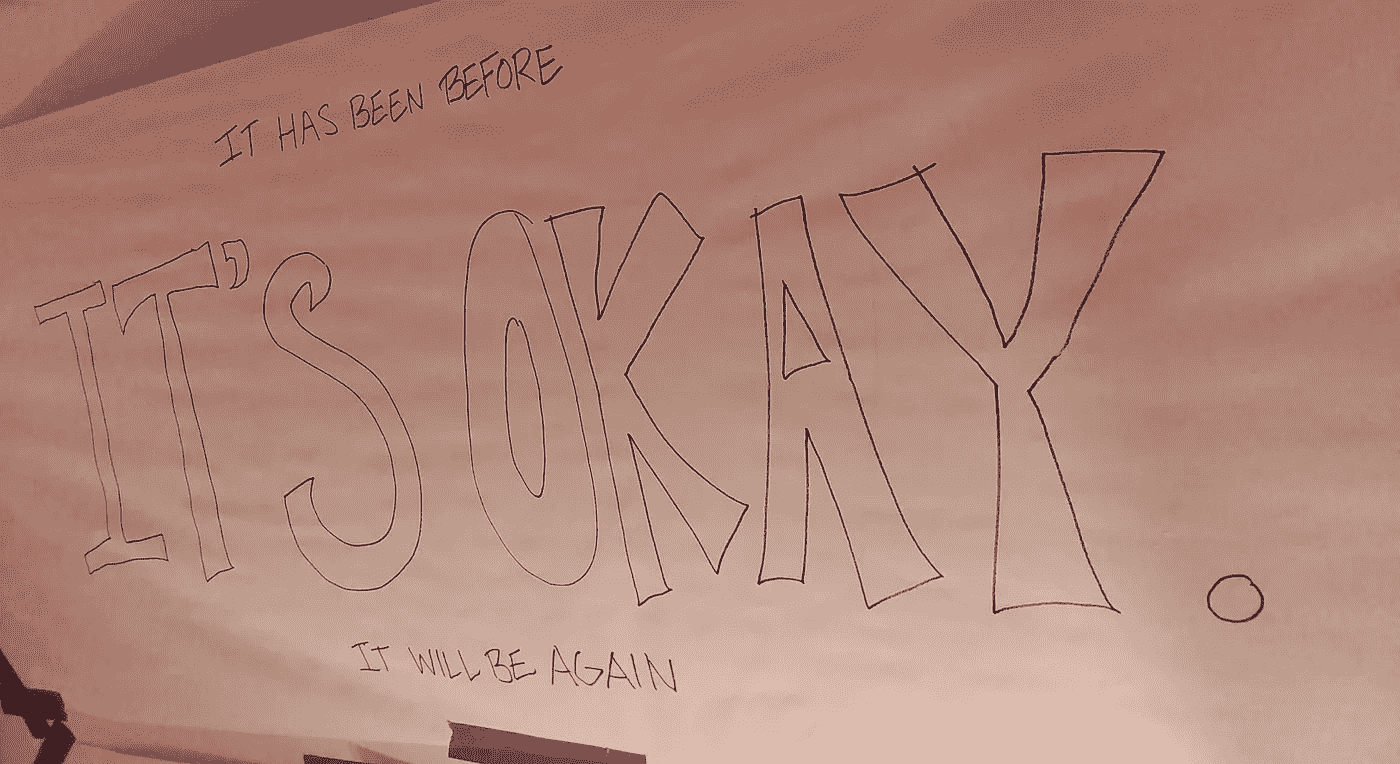 IT HAS BEEN BEFORE
IT'S OKAY.
IT WILL BE AGAIN